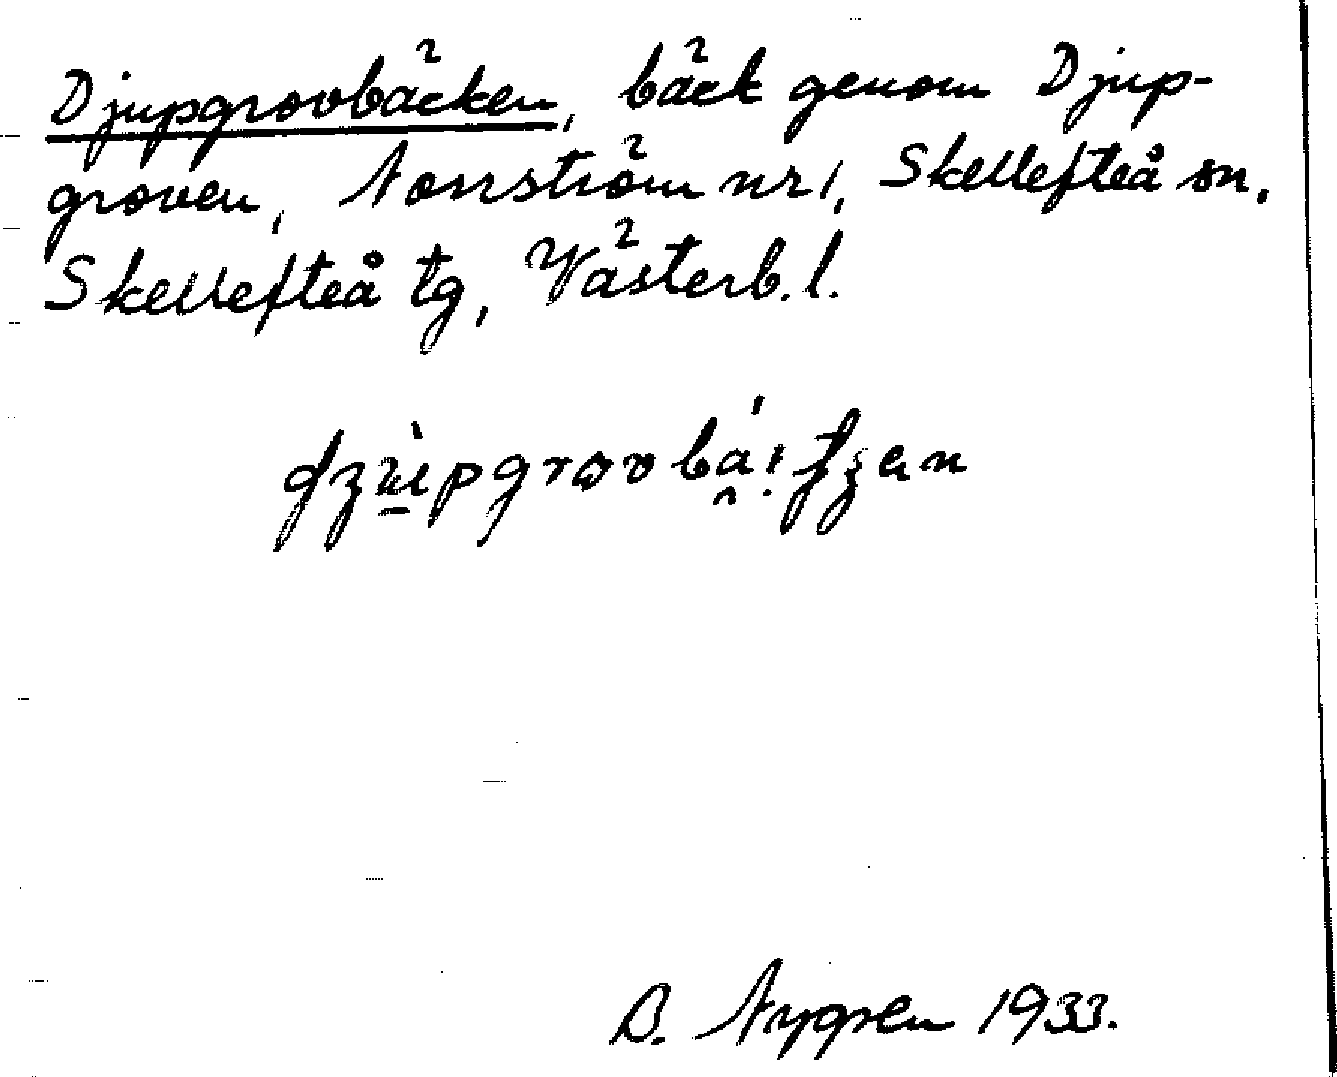 Djupgrovbäcken, bäck genom Djup-
groven, Norrström nr 1, Skellefteå sn.
Skellefteå tg, Västerb. l.
B. Nygren 1933.